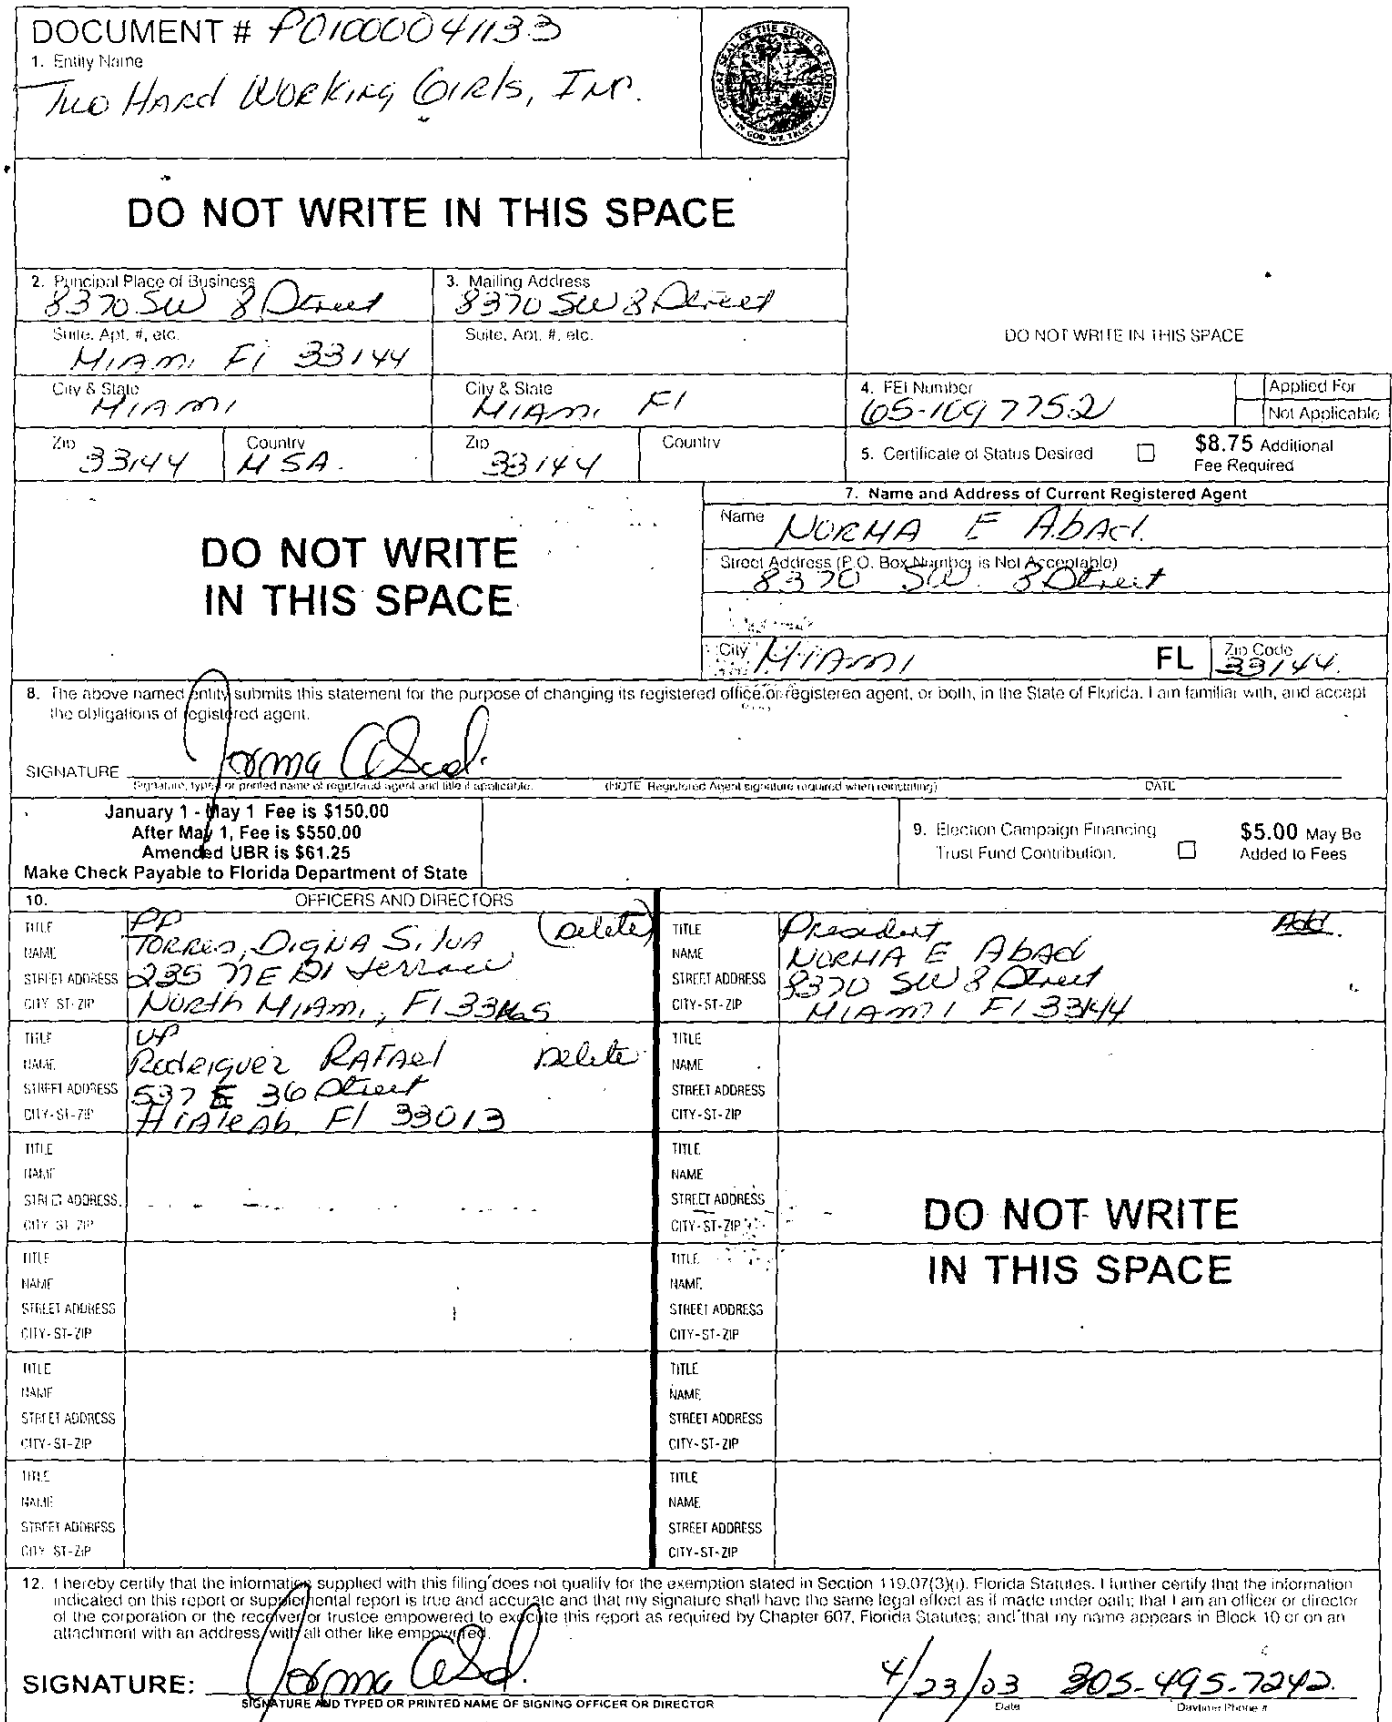 DOCUMENT # P01000041133
1. Entity Name
Two Hard Working Girls, Inc.
GREAT SEAL OF THE STATE OF FLORIDA
IN GOD WE TRUST
DO NOT WRITE IN THIS SPACE
2. Principal Place of Business
8370 SW 8 Street
3. Mailing Address
8370 SW 8 Street
Suite, Apt. #, etc.
Miami Fl 33144
Suite, Apt. #, etc.
DO NOT WRITE IN THIS SPACE
City & State
Miami
City & State
Miami Fl
4. FEI Number
65-1097752
Applied For
Not Applicable
Zip
33144
Country
USA.
Zip
33144
Country
5. Certificate of Status Desired
$8.75 Additional
Fee Required
DO NOT WRITE
IN THIS SPACE
7. Name and Address of Current Registered Agent
Name
NORMA E Abad.
Street Address (P.O. Box Number is Not Acceptable)
8370 SW. 8 Street
City
Miami
FL
Zip Code
33144.
8. The above named entity submits this statement for the purpose of changing its registered office or registered agent, or both, in the State of Florida. I am familiar with, and accept
the obligations of registered agent.
SIGNATURE Norma Abad.
Signature, typed or printed name of registered agent and title if applicable.
(NOTE Registered Agent signature required when reinstating)
DATE
January 1 - May 1 Fee is $150.00
After May 1, Fee is $550.00
Amended UBR is $61.25
Make Check Payable to Florida Department of State
9. Election Campaign Financing
Trust Fund Contribution.
$5.00 May Be
Added to Fees
10. OFFICERS AND DIRECTORS
TITLE PP (Delete)
NAME TORRES, DIGNA SILVA
STREET ADDRESS 235 NE 121 terrace
CITY-ST-ZIP North Miami, Fl
TITLE President Add.
NAME NORMA E Abad
STREET ADDRESS 8370 SW 8 Street
CITY-ST-ZIP MIAMI Fl 33144
TITLE VP
NAME Rodriguez RAFAEl Delete
STREET ADDRESS 537 E 36 Street
CITY-ST-ZIP Hialeah Fl 33013
TITLE
NAME
STREET ADDRESS
CITY-ST-ZIP
TITLE
NAME
STREET ADDRESS
CITY-ST-ZIP
TITLE
NAME
STREET ADDRESS
CITY-ST-ZIP
DO NOT WRITE
IN THIS SPACE
TITLE
NAME
STREET ADDRESS
CITY-ST-ZIP
TITLE
NAME
STREET ADDRESS
CITY-ST-ZIP
TITLE
NAME
STREET ADDRESS
CITY-ST-ZIP
TITLE
NAME
STREET ADDRESS
CITY-ST-ZIP
TITLE
NAME
STREET ADDRESS
CITY-ST-ZIP
TITLE
NAME
STREET ADDRESS
CITY-ST-ZIP
12. I hereby certify that the information supplied with this filing does not qualify for the exemption stated in Section 119.07(3)(i), Florida Statutes. I further certify that the information
indicated on this report or supplemental report is true and accurate and that my signature shall have the same legal effect as if made under oath; that I am an officer or director
of the corporation or the receiver or trustee empowered to execute this report as required by Chapter 607, Florida Statutes; and that my name appears in Block 10 or on an
attachment with an address, with all other like empowered.
SIGNATURE: Norma Abad. 4/23/03 305-495-7242.
SIGNATURE AND TYPED OR PRINTED NAME OF SIGNING OFFICER OR DIRECTOR
Date
Daytime Phone #